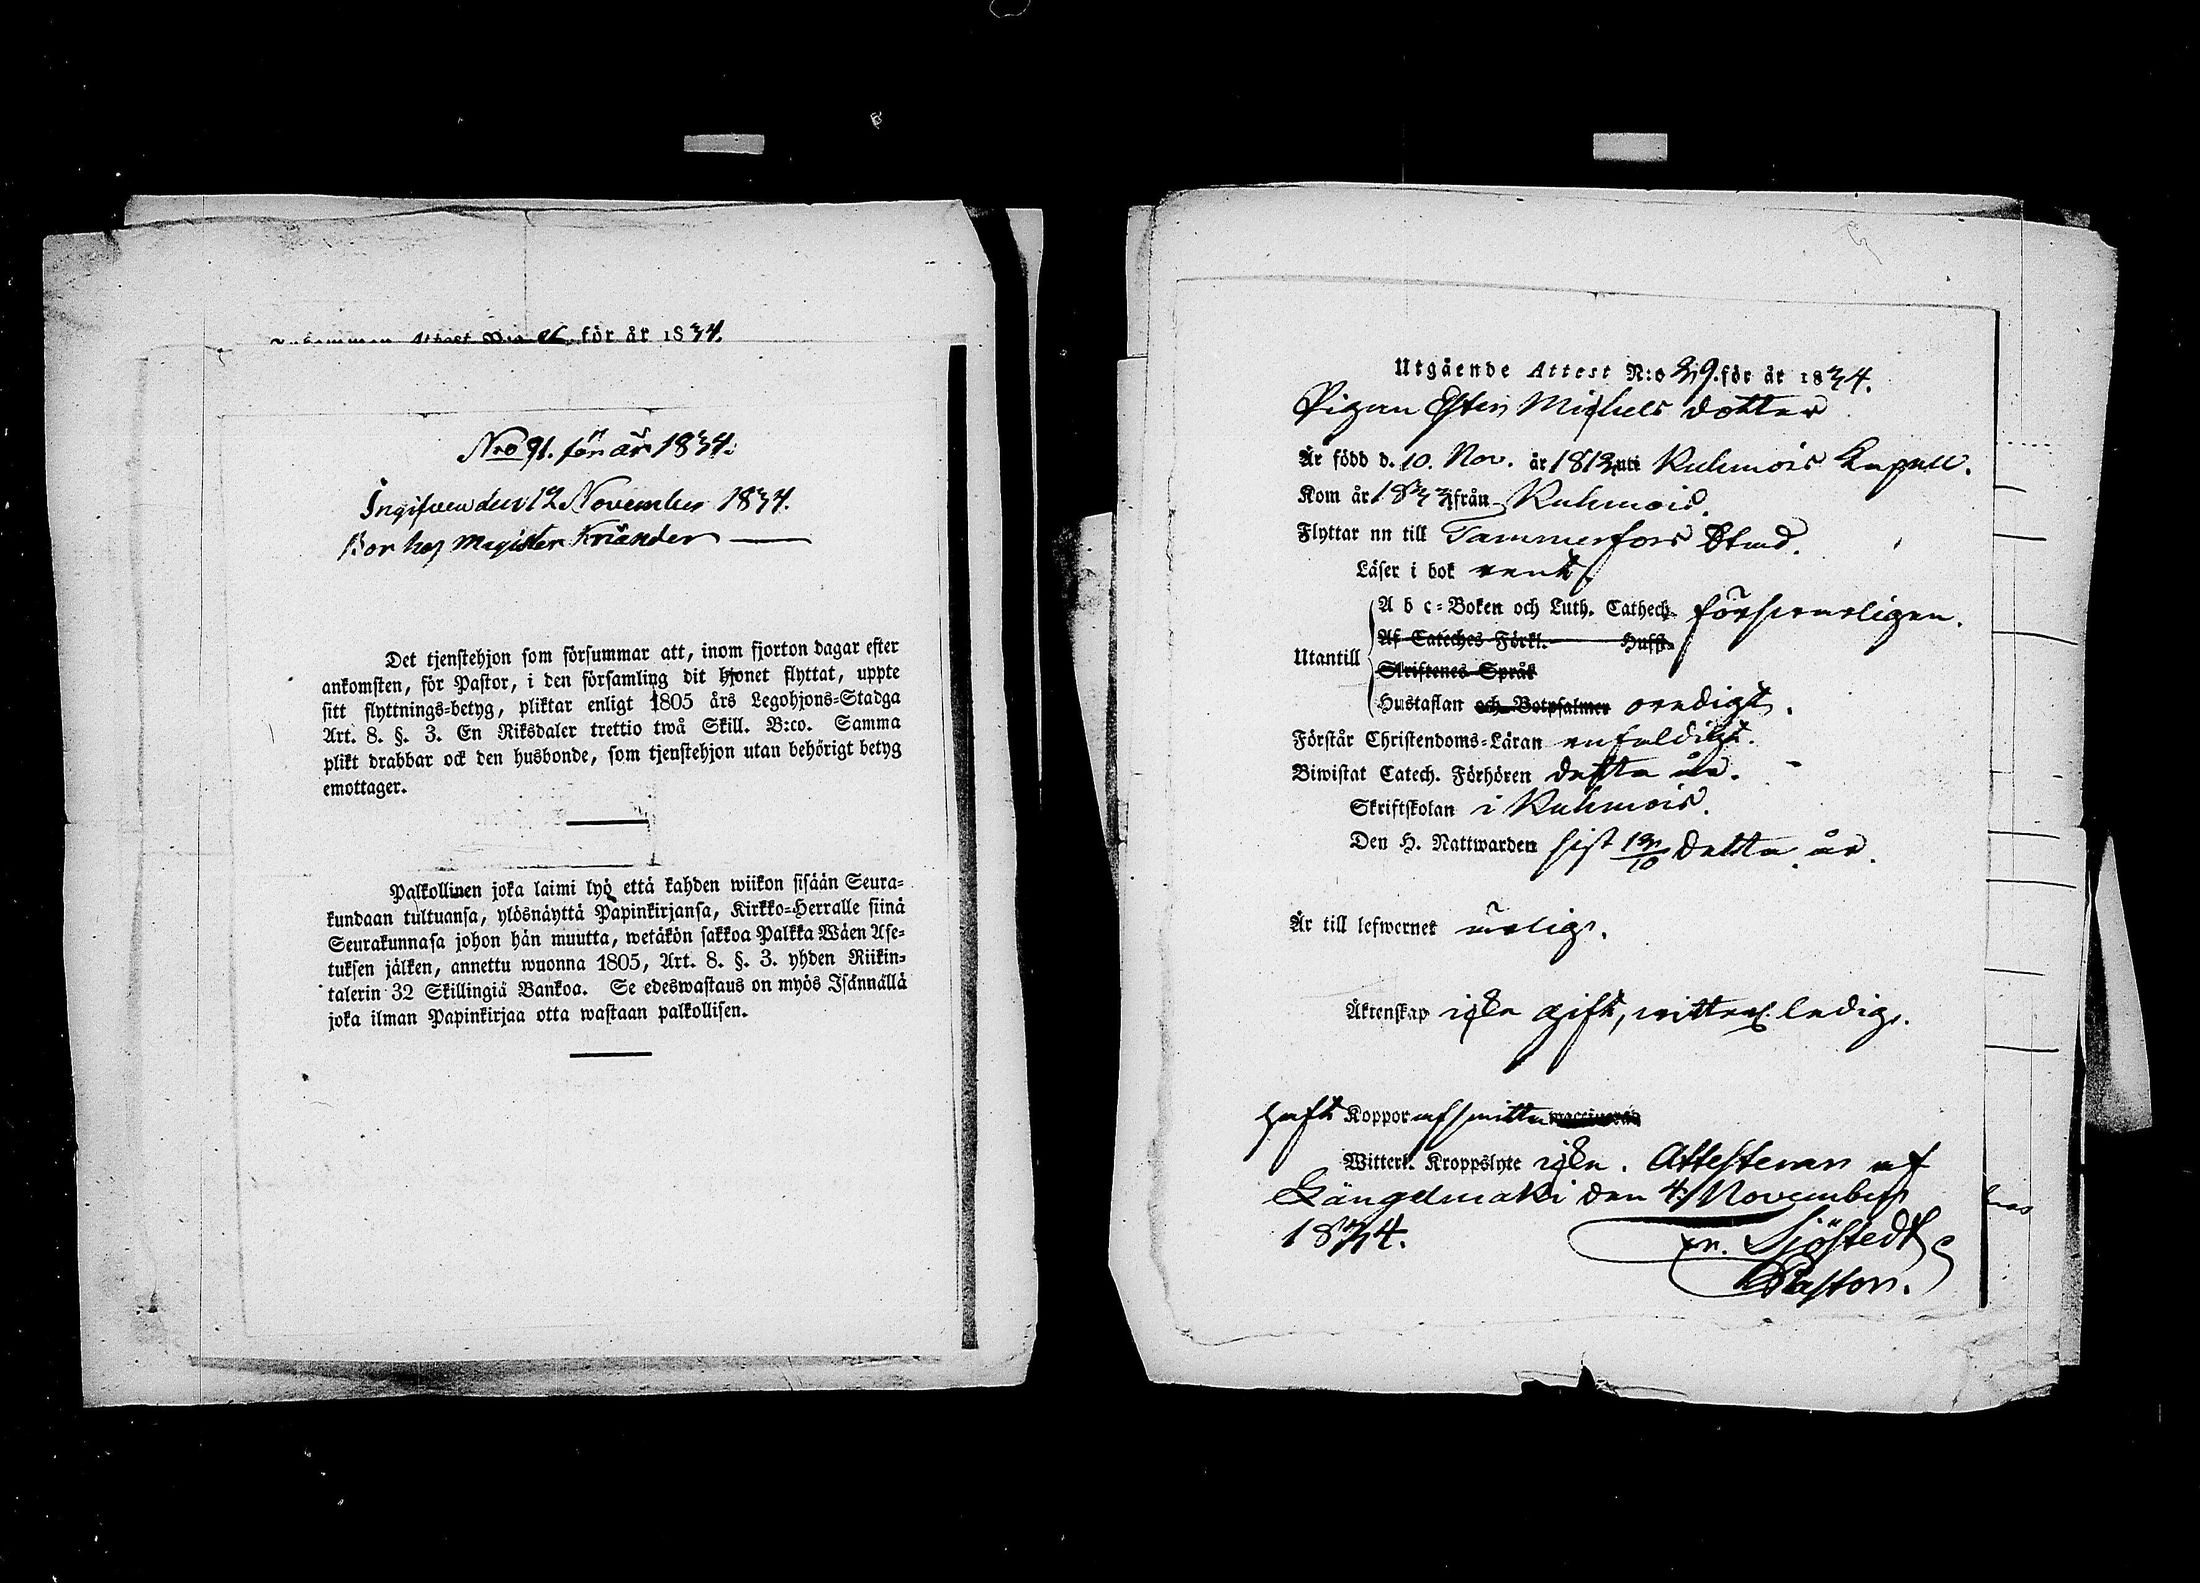 Attest N:o 26 för år 1834.
N:o 91. för år 1834.
Ingifven den 12 November 1834.
Bor hos Magister Kriander
Det tjenstehjon som försummar att, inom fjorton dagar efter
ankomsten, för Pastor, i den församling dit hjonet flyttat, uppte
sitt flyttnings-betyg, pliktar enligt 1805 års Legohjons-Stadga
Art. 8. §. 3. En Riksdaler trettio twå Skill. B:co. Samma
plikt drabbar ock den husbonde, som tjenstehjon utan behörigt betyg
emottager.
Palkollinen joka laimi lyö että kahden wiikon sisään Seura-
kundaan tultuansa, ylösnäyttä Papinkirjansa, Kirkko-Herralle siinä
Seurakunnasa johon hän muutta, wetäkön sakkoa Palkka Wäen Ase-
tuksen jälken, annettu wuonna 1805, Art. 8. §. 3. yhden Riikin-
talerin 32 Skillingiä Bankoa. Se edeswastaus on myös Isännällä
joka ilman Papinkirjaa otta wastaan palkollisen.
Utgående Attest N:o 29. för år 1834.
Pigan Ester Michels dotter
Är född d. 10. Nov. år 1812 uti Kuhmois Kapell.
Kom år 1833 från Kuhmois.
Flyttar nn till Tammerfors Stad.
Läser i bok rent
A b c-Boken och Luth. Cathech. försvarligen.
Af Cateches Förkl. Hufst.
Utantill
Skriftenes Språk
Hustaflan och Botpsalmer ordigt.
Förstår Christendoms-Läran enfaldigt.
Biwistat Catech. Förhören detta år.
Skriftskolan i Kuhmois.
Den H. Nattwarden sist 12/10 detta år.
Är till lefwernet ärlig.
Äktenskap icke gift, witterl. ledig.
haft Koppor af smitta
Witterl. Kroppslyte icke. Attesteras af
Längelmäki den 4 November
1834. Sjöstedt
Pastor.